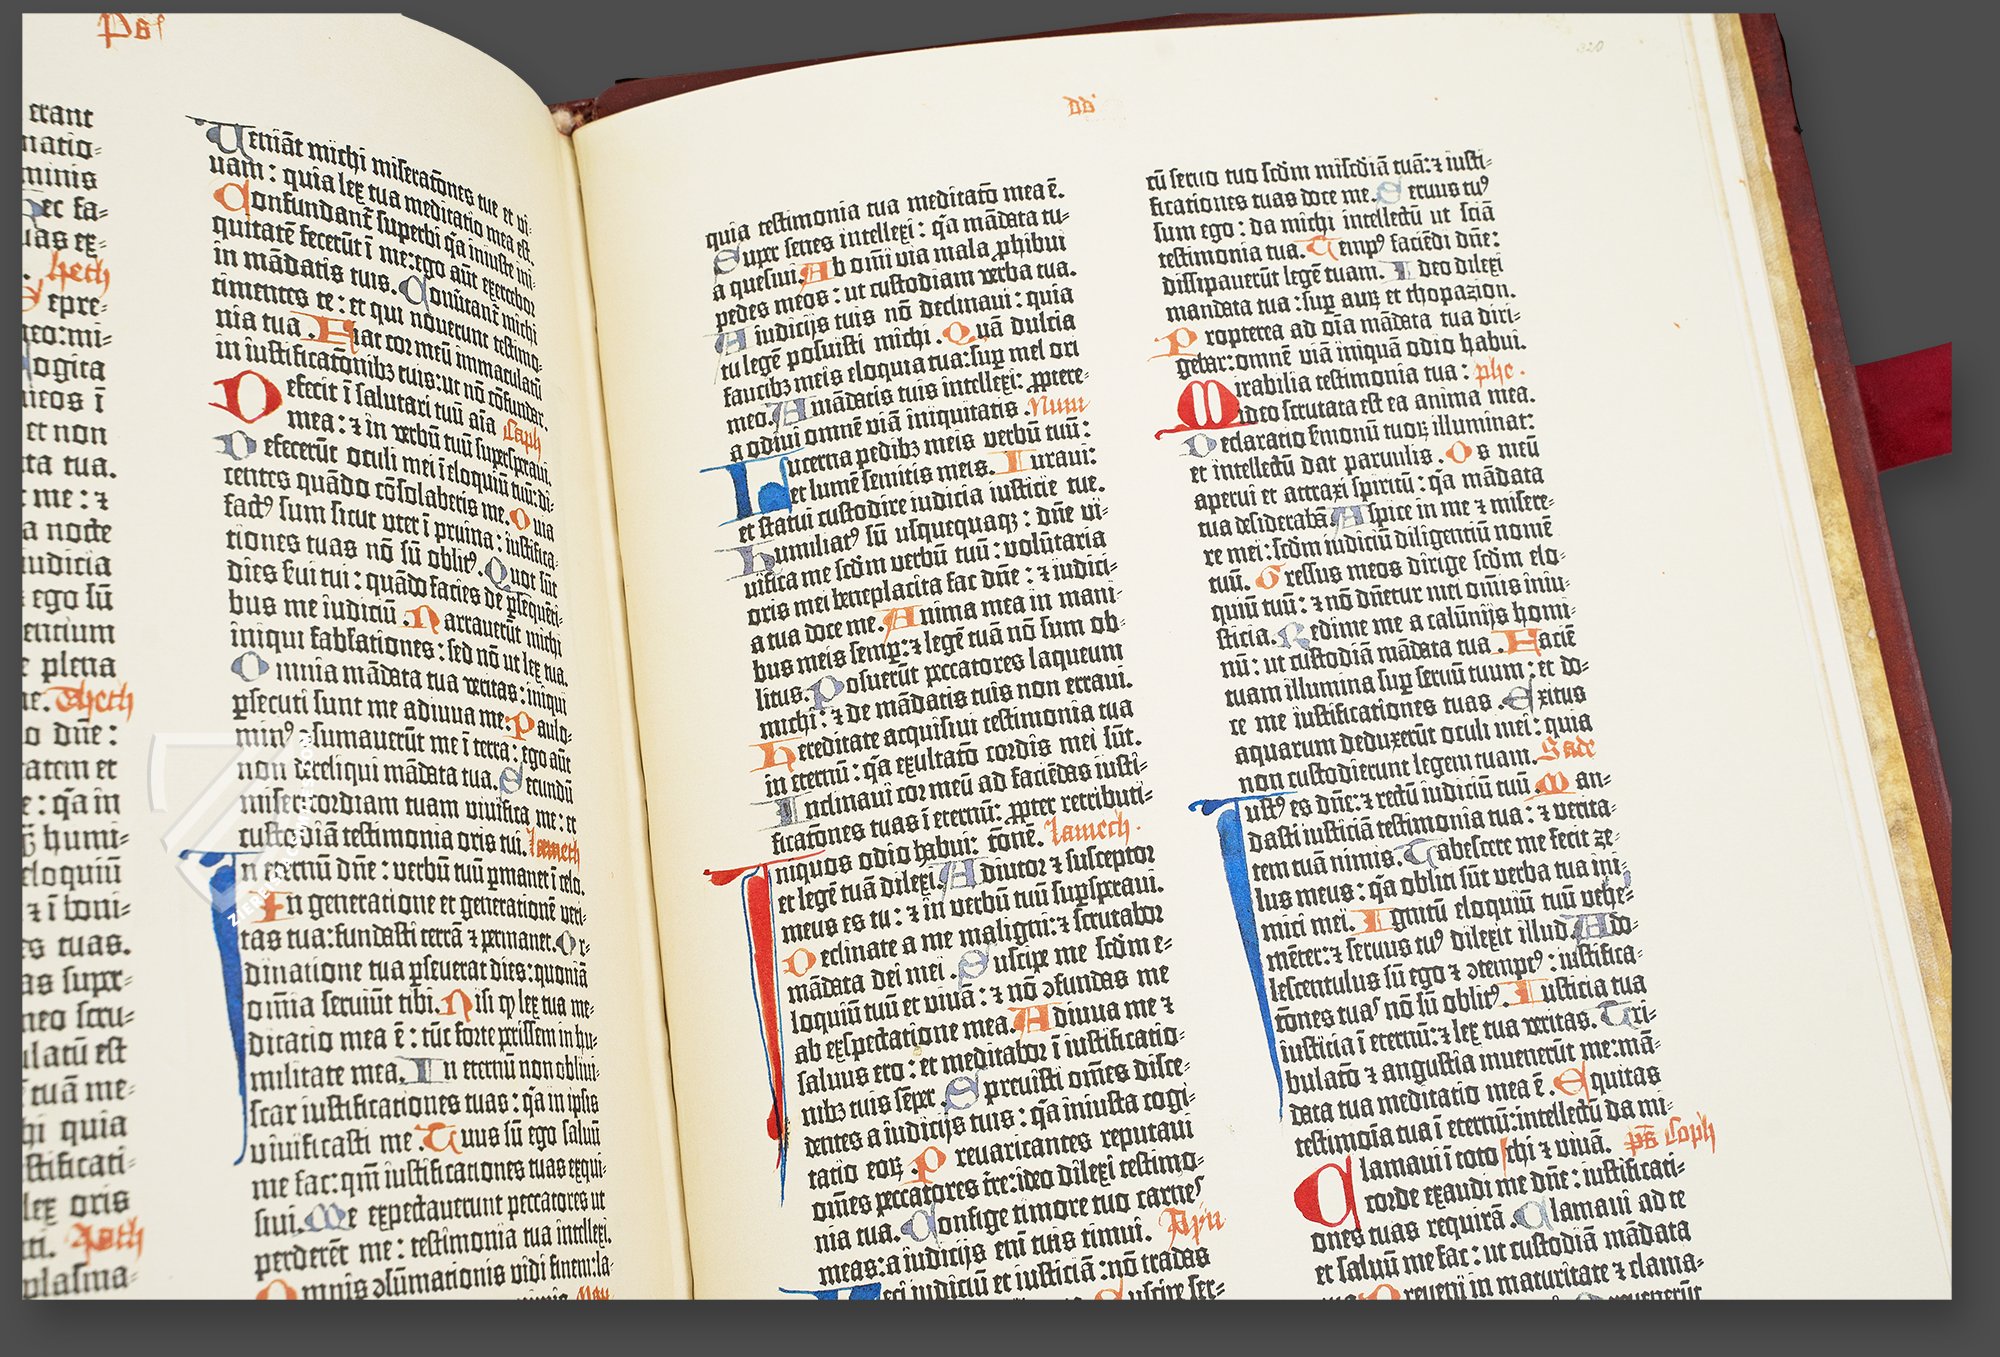 Ps
erant
natio⸗
minis
ec fa⸗
uas ex⸗
heth
S epre⸗
eo:mi⸗
ogita
meos ī
et non
ta tua.
me : ⁊
a nocte
iudicia
ego sū
entium
e plena
ne. Theth
o dn̄e :
et
: q̄a in
humi⸗
eloquiū
⁊ ī boni⸗
s tuas.
as supr⸗
meo scru⸗
latū est
tuā me⸗
hi quia
stificati⸗
lex oris
ti. Joth
plasma⸗
Veniāt michi miserat̄ones tue et vi⸗
uam : quia lex tua meditatio mea est.
Confundant̄ superbi q̄a iniuste ini⸗
quitatē fecerūt ī me:ego aūt exercebor
in mādatis tuis. Conūtant̄ michi
timentes te : et qui nouerunt testimo⸗
nia tua . Fiat cor meū immaculatū
in iustificat̄onibꝫ tuis:ut nō cōfundar.
Defecit ī salutari tuū aīa Caph
mea : ⁊ in verbū tuū supersperaui.
Defecerūt oculi mei ī eloquiū tuū:di⸗
centes quādo cōsolaberis me. Quia
factꝰ sum sicut uter ī pruina : iustifica⸗
tiones tuas nō sū oblitꝰ. Quot sūt
dies s̄ui tui : quādo facies de ꝑsequēti⸗
bus me iudiciū . Narrauerūt michi
iniqui fabl̄ationes : sed nō ut lex tua.
Omnia mādata tua veritas : iniqui
ꝑsecuti sunt me adiuua me. Paulo⸗
minꝰ ↄsumauerūt me ī terra : ego aūt
non dereliqui mādata tua. Secundū
misericordiam tuam viuifica me : et
custodiā testimonia oris tui. Lameth
In eternū dn̄e : verbū tuū ꝑmanet ī celo.
In generatione et generationē veri⸗
tas tua:fundasti terrā ⁊ permanet. Or⸗
dinatione tua ꝑseuerat dies : quoniā
om̄ia seruiūt tibi. Nisi ꝙ lex tua me⸗
ditatio mea ē : tūc forte perissem in hu⸗
militate mea. In eternū non obliui⸗
scar iustificationes tuas : q̄a in ipsis
viuificasti me. Tuus sū ego saluū
me fac: qm̄ iustificationes tuas exqui⸗
siui. Me expectauerunt peccatores ut
perderēt me : testimonia tua intellexi.
Omnis ↄsūmationis vidi finem:la⸗
Mem
dd
320
quia testimonia tua meditat̄o mea ē.
Super senes intellexi : q̄a mādata tu⸗
a quesiui. Ab om̄i via mala ꝓhibui
pedes meos : ut custodiam verba tua.
A iudicijs tuis nō declinaui : quia
tu legē posuisti michi . Quā dulcia
faucibꝫ meis eloquia tua:suꝑ mel ori
meo. A mādatis tuis intellexi: ꝓptere⸗
a odiui omnē viā iniquitatis . Num
Lucerna pedibꝫ meis verbū tuū :
et lumē semitis meis. Iuraui:
et statui custodire iudicia iusticie tue.
Humiliatꝰ sū usquequaqꝫ : dn̄e vi⸗
uifica me scd̄m verbū tuū : volūtaria
oris mei beneplacita fac dn̄e : ⁊ iudici⸗
a tua doce me. Anima mea in mani⸗
bus meis semꝑ: ⁊ legē tuā nō sum ob⸗
litus. Posuerūt peccatores laqueum
michi : ⁊ de mādatis tuis non erraui.
Hereditate acquisiui testimonia tua
in eternū : q̄a exultat̄o cordis mei sūt.
Inclinaui cor meū ad faciēdas iusti⸗
ficat̄ones tuas ī eternū: ꝓpter retributi⸗
Iniquos odio habui: t̄onē. Lamech.
et legē tuā dilexi. Adiutor ⁊ susceptor
meus es tu : ⁊ in verbū tuū suꝑsperaui.
Declinate a me maligni: ⁊ scrutabor
mādata dei mei . Suscipe me scd̄m e⸗
loquiū tuū et viuā : ⁊ nō ↄfundas me
ab exspectatione mea. Adiuua me ⁊
saluus ero : et meditabor ī iustificatio⸗
nibꝫ tuis semper. Spreuisti om̄es disce⸗
dentes a iudicijs tuis : q̄a iniusta cogi⸗
tatio eoꝝ . Preuaricantes reputaui
om̄es peccatores tr̄e:ideo dilexi testimo⸗
nia tua. Confige timore tuo carnes
meas: a iudicijs eni tuis timui. Ayn
Feci iudiciū et iusticiā : nō tradas
Suscipe ser⸗
cū seruo tuo scd̄m mīsc̄diā tuā: ⁊ iusti⸗
ficationes tuas doce me. Seruus tuꝰ
sum ego : da michi intellectū ut sciā
testimonia tua. Tempꝰ faciēdi dn̄e:
dissipauerūt legē tuam. Ideo dilexi
mandata tua : suꝑ auꝝ et thopazion.
Propterea ad oīa mādata tua diri⸗
gebar: omnē viā iniquā odio habui.
Mirabilia testimonia tua : phe .
ideo scrutata est ea anima mea.
Declaratio s̄monū tuoꝝ illuminat:
et intellectū dat paruulis . Os meū
aperui et attraxi spiritū : q̄a mādata
tua desiderabā. Aspice in me ⁊ misere⸗
re mei : scd̄m iudiciū diligentiū nomē
tuū. Gressus meos dirige scd̄m elo⸗
quiū tuū : ⁊ nō dn̄etur mei om̄is iniu⸗
sticia. Redime me a calūnijs homi⸗
nū : ut custodiā mādata tua . Faciē
tuam illumina suꝑ seruū tuum : et do⸗
ce me iustificationes tuas . Exitus
aquarum deduxerūt oculi mei : quia
non custodierunt legem tuam. Sade
Iustꝰ es dn̄e: ⁊ rectū iudiciū tuū . Man⸗
dasti iusticiā testimonia tua : ⁊ verita⸗
tem tuā nimis. Tabescere me fecit ze⸗
lus meus : q̄a obliti sūt verba tua ini⸗
mici mei. Ignitū eloquiū tuū vehe⸗
mēter: ⁊ seruus tuꝰ dilexit illud. Ado⸗
lescentulus sū ego ⁊ ↄtemptꝰ : iustifica⸗
t̄ones tuas nō sū oblitꝰ. Iusticia tua
iusticia ī eternū: ⁊ lex tua veritas. Tri⸗
bulat̄o ⁊ angustia inuenerūt me:mā⸗
data tua meditatio mea ē. Equitas
testimoīa tua ī eternū:intellectū da mi⸗
Clamaui ī toto chi ⁊ viuā. ps Coph
corde exaudi me dn̄e : iustificati⸗
ones tuas requirā. Clamaui ad te
et saluū me fac : ut custodiā mādata
Preueni in maturitate ⁊ clama⸗